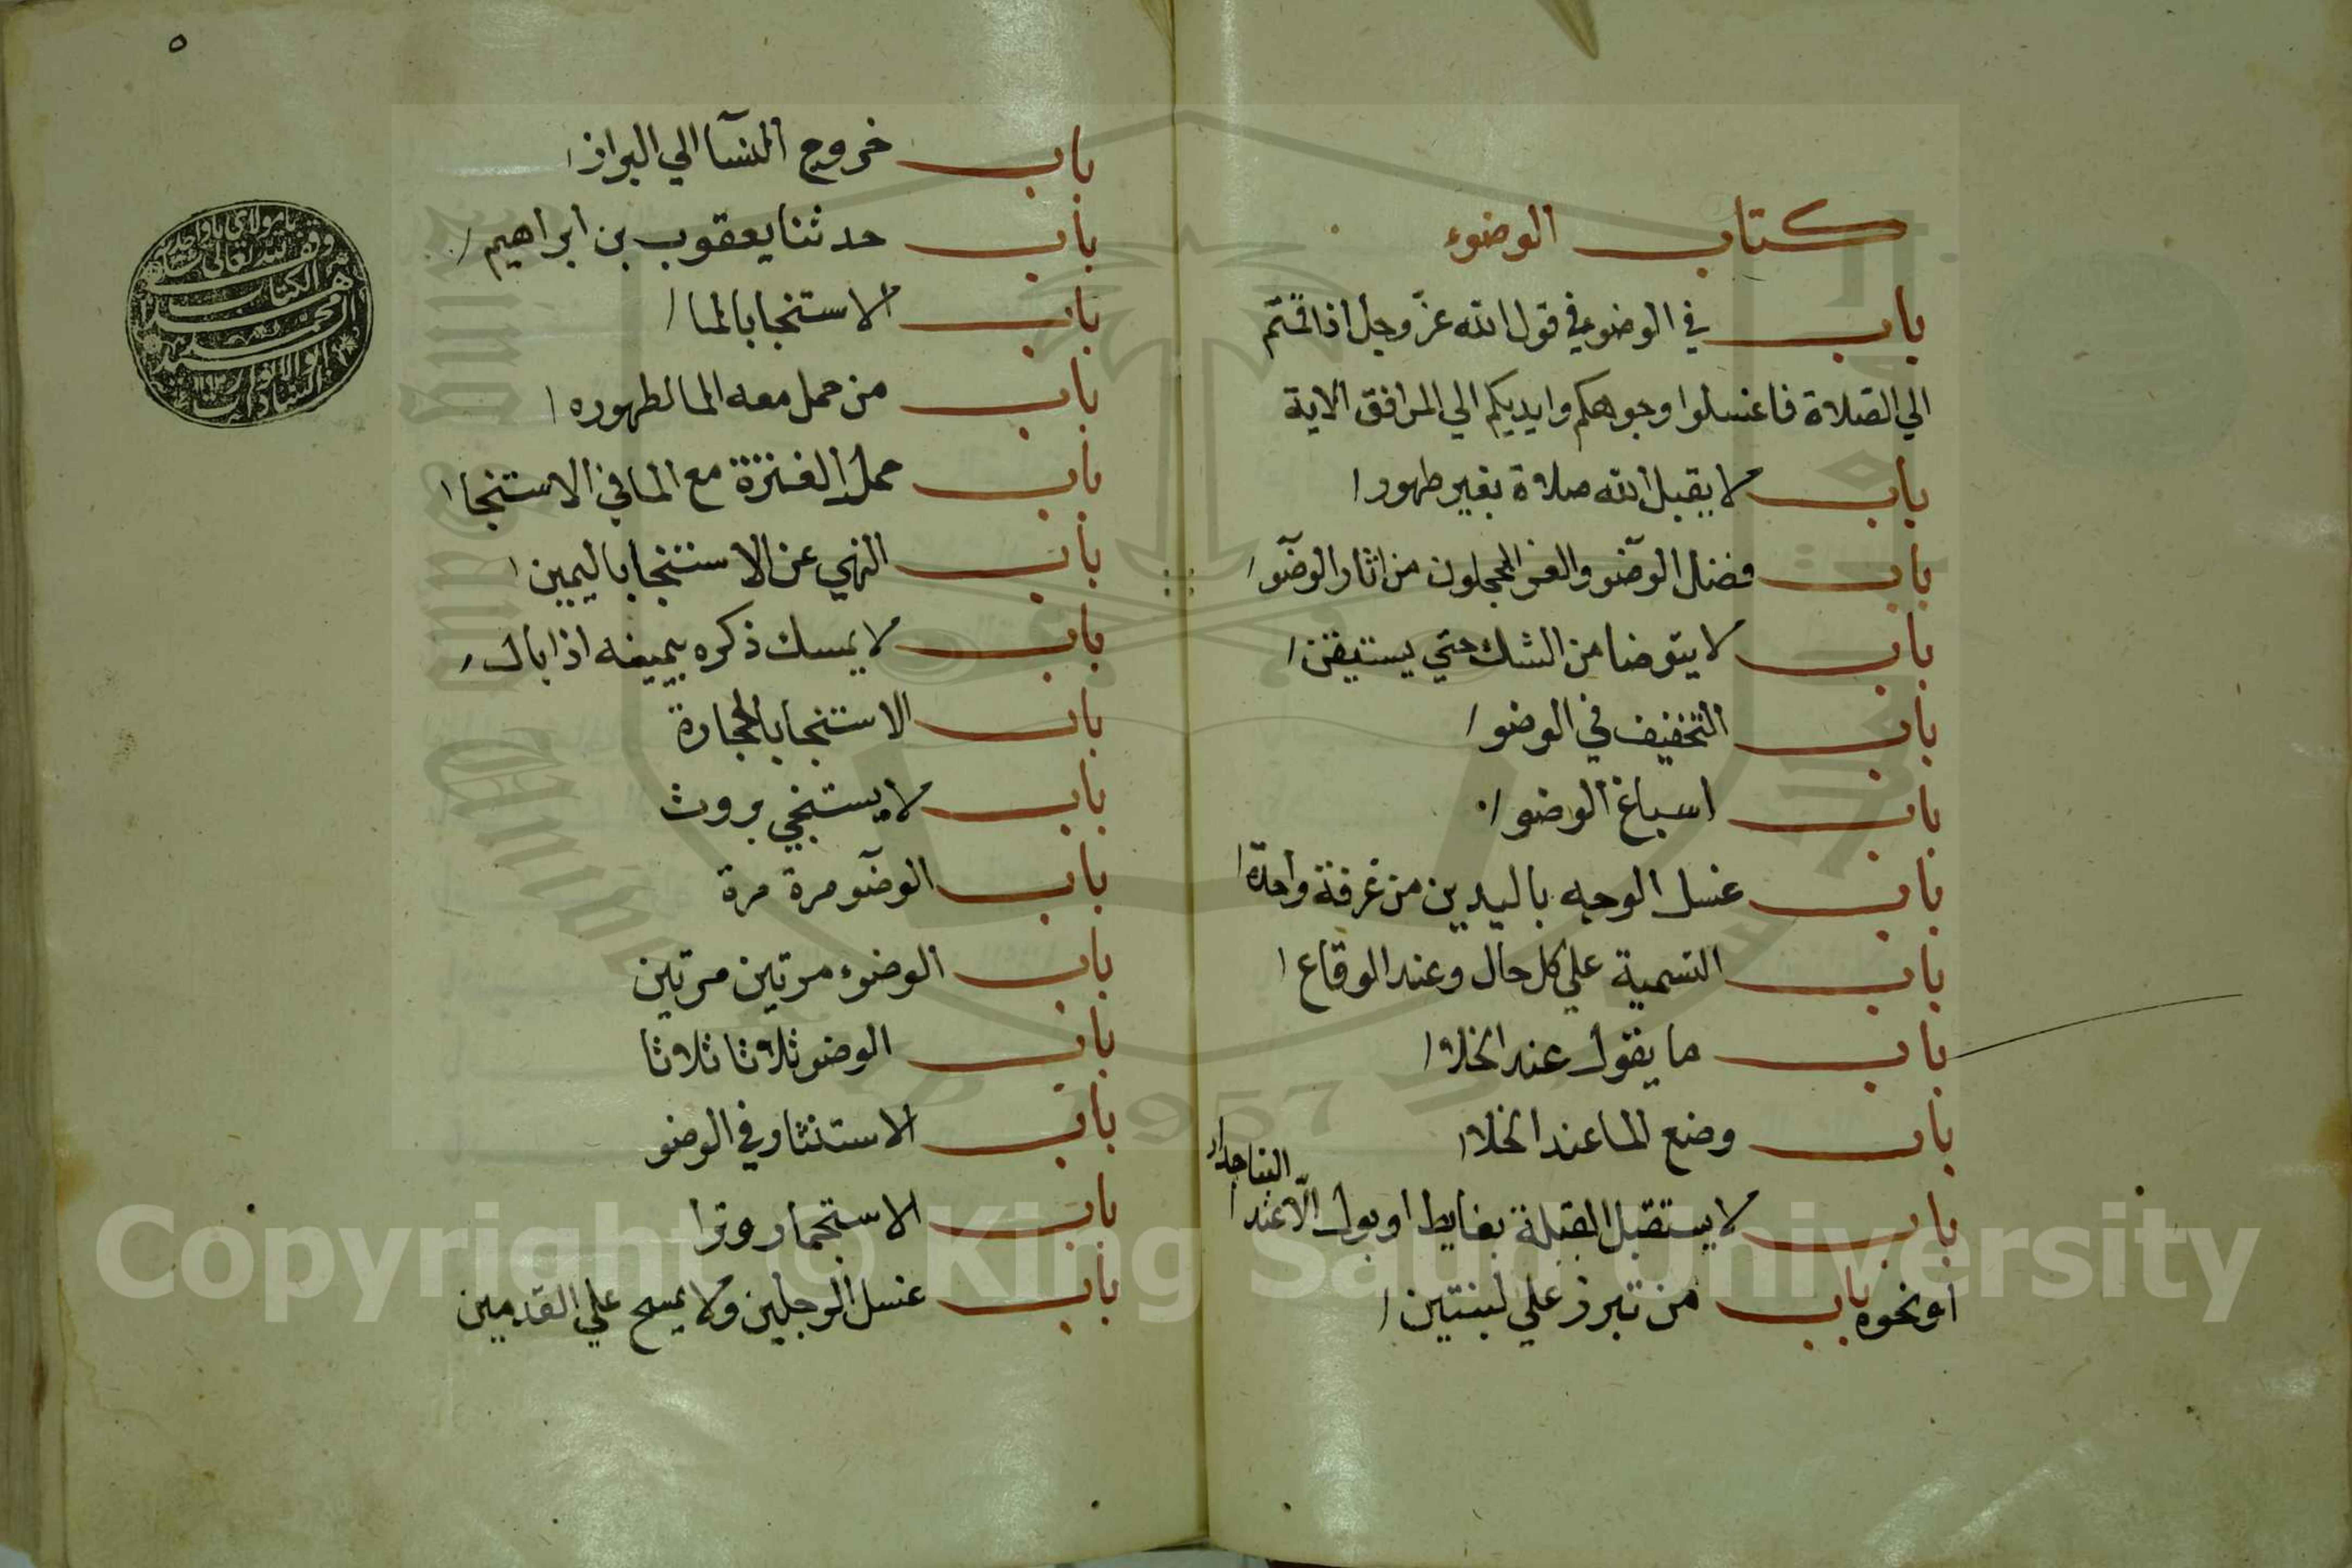 كتاب الوضوء
باب في الوضوء في قول الله عزّ وجل اذا قمتم
الي الصلاة فاغسلوا وجوهكم وايديكم الي المرافق الاية
باب لا يقبل الله صلاة بغير طهور
باب فضل الوضو والغر المحجلون من اثار الوضو
باب لا يتوضا من الشك حتي يستيقن
باب التخفيف في الوضو
باب اسباغ الوضو
باب غسل الوجه باليدين من غرفة واحدة
باب التسمية علي كل حال وعند الوقاع
باب ما يقول عند الخلا
باب وضع الما عند الخلا
باب لا يستقبل القبلة بغايط او بول الّا عند البنا جدار
او نحوه باب من تبرز علي لبنتين
٥
باب خروج النسآ الي البراز
باب حدثنا يعقوب بن ابراهيم
باب الاستنجا بالما
باب من حمل معه الما لطهوره
باب حمل العنزة مع الما في الاستنجا
باب النهي عن الاستنجا باليمين
باب لا يمسك ذكره بيمينه اذا بال
باب الاستنجا بالحجارة
باب لا يستنجي بروث
باب الوضو مرة مرة
باب الوضوء مرتين مرتين
باب الوضو ثلاثا ثلاثا
باب الاستنثار في الوضو
باب الاستجمار وترا
باب غسل الرجلين ولا يمسح علي القدمين
وقف لله تعالى
هذا الكتاب
محمد
Copyright © King Saud University
1957